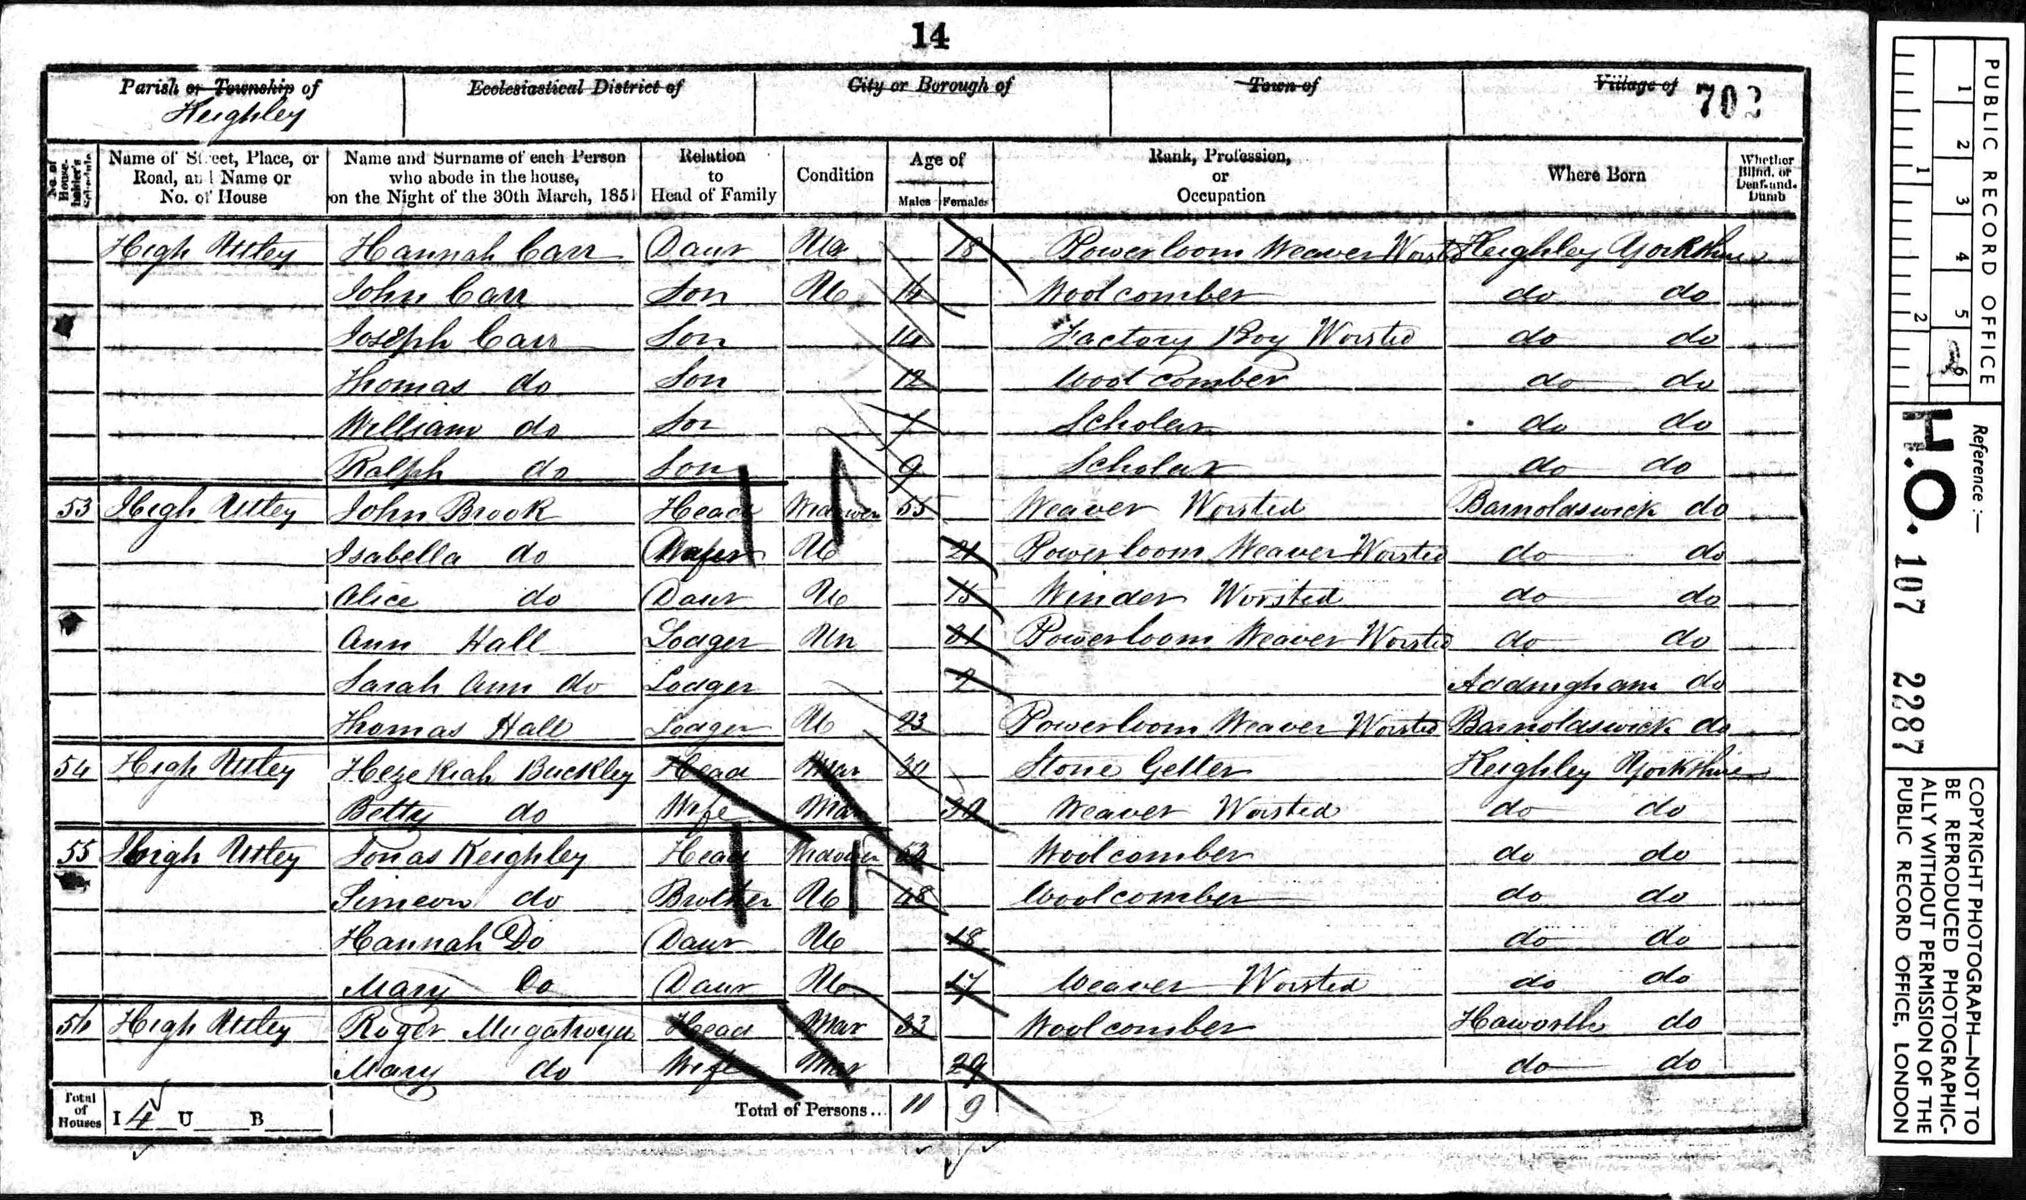 14
Parish or Township of Ecclesiastical District of City or Borough of Town of Village of
Keighley 702
No. of Householder's Schedule Name of Street, Place, or Road, and Name or No. of House Name and Surname of each Person who abode in the house, on the Night of the 30th March, 1851 Relation to Head of Family Condition Age of Males Females Rank, Profession, or Occupation Where Born Whether Blind, or Deaf-and-Dumb
High Utley Hannah Carr Daur Un 18 Powerloom Weaver Worsted Keighley Yorkshire
John Carr Son Un Woolcomber do do
Joseph Carr Son Factory Boy Worsted do do
Thomas do Son 12 Wool comber do do
William do Son 7 Scholar do do
Ralph do Son 9 Scholar do do
53 High Utley John Brook Head Widower 55 Weaver Worsted Barnoldswick do
Isabella do Un 21 Powerloom Weaver Worsted do do
Alice do Daur Un 15 Winder Worsted do do
Ann Hall Lodger Un Powerloom Weaver Worsted do do
Sarah Ann do Lodger Addingham do
Thomas Hall Lodger Un 23 Powerloom Weaver Worsted Barnoldswick do
54 High Utley Hezekiah Buckley Head Mar 30 Stone Getter Keighley Yorkshire
Betty do Wife Mar 30 Weaver Worsted do do
55 High Utley Jonas Keighley Head Widower Woolcomber do do
Simeon do Brother Un 48 Woolcomber do do
Hannah Do Daur Un 18 do do
Mary Do Daur Un 17 Weaver Worsted do do
56 High Utley Roger Mugatroyd Head Mar 33 Woolcomber Haworth do
Mary do Wife Mar 29 do do
Total of Houses I 4 U B Total of Persons... 11 9
PUBLIC RECORD OFFICE
1 2 3 4 5 6
1 2
Reference:—
H.O. 107 2287
COPYRIGHT PHOTOGRAPH—NOT TO BE REPRODUCED PHOTOGRAPHIC-
ALLY WITHOUT PERMISSION OF THE PUBLIC RECORD OFFICE, LONDON